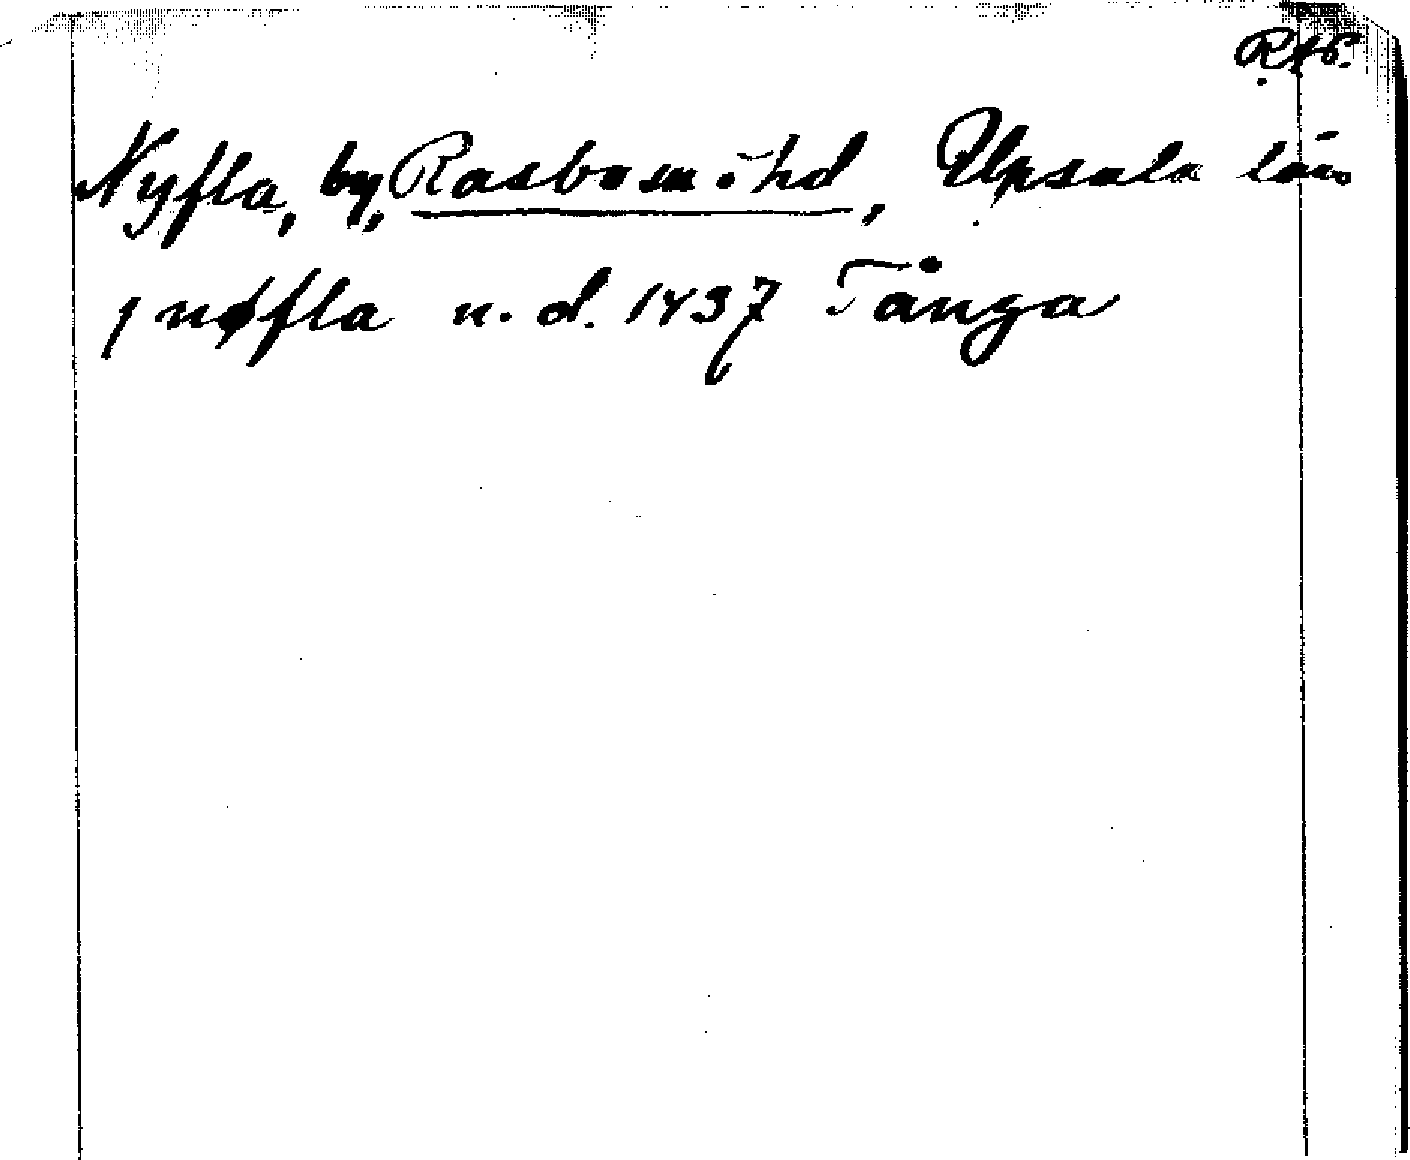 Nyfla, by, Rasbo sn o hd, Upsala län
j nøfla n. d. 1437 Tånga